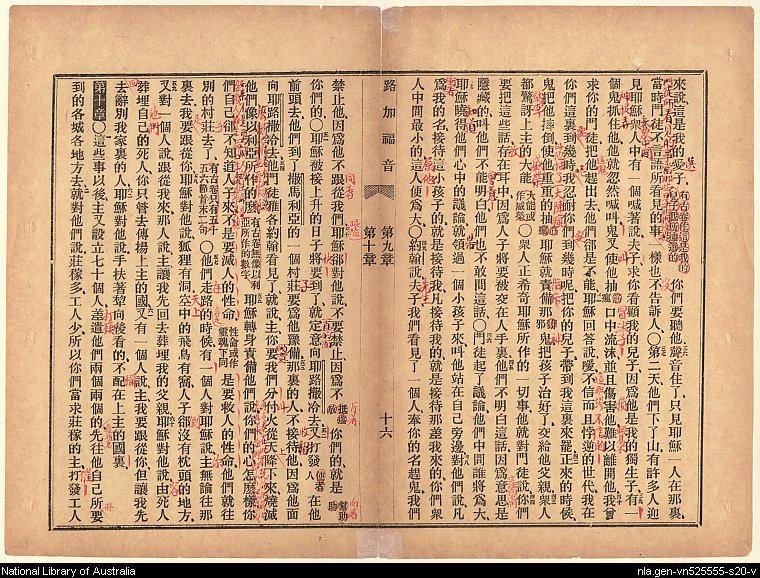 來說、這是我的愛子、有古卷作這是我的所揀選的你們要聽他聲音住了、只見耶穌一人在那裏、
當時門徒不言語、所看見的事一樣也不告訴人○第二天他們下了山有許多人迎
見耶穌人中有一個喊著說夫子求你看顧我的兒子因爲他是我的獨生子有一
個鬼抓住他他就忽然喊叫鬼又使他抽瘋口中流沫並且傷害他難以離開他我曾
求你的門徒把他趕出去他們卻是不能耶穌回答說噯不信而且悖逆的世代我在
你們這裏到幾時我忍耐你們到幾時呢把你的兒子帶到我這裏來罷正來的時候、
鬼把他摔倒使他重重的抽瘋耶穌就責備那邪鬼把孩子治好了交給他父親衆人
都驚訝上主的大能大能或作威榮○衆人正希奇耶穌所作的一切事他就對門徒說你們
要把這些話存在耳中因爲人子將要被交在人手裏他們不明白這話因爲意思是
隱藏的叫他們不能明白他們也不敢問這話○門徒起了議論他們中間誰將爲大、
耶穌曉得他們心中的議論就領過一個小孩子來叫他站在自己旁邊對他們說凡
爲我的名接待這小孩子的就是接待我凡接待我的就是接待那差我來的你們衆
人中間最小的這人便爲大○約翰說夫子我們看見了一個人奉你的名趕鬼我們
路加福音 第九章 第十章 十六
禁止他因爲他不跟從我們耶穌卻對他說不要禁止因爲不抵擋你們的就是幫助
你們的○耶穌被接上升的日子將要到了就定意向耶路撒冷去又打發人在他
前頭去他們到了撒馬利亞的一個村莊要爲他豫備那裏的人不接待他因爲他面
向耶路撒冷去他門徒雅各約翰看見了就說主你要我們分付火從天降下來燒滅
他們像以利亞所作的麼有古卷無像以利亞所作的數字耶穌轉身責備他們說你們的心怎麼樣你
們自己卻不知道人子來不是要滅人的性命性命或作靈魂下同是要救人的性命他們就往
別的村莊去了有古卷只有五十五六節首末二句○他們走路的時候有一個人對耶穌說主無論往那
裏去我要跟從你耶穌對他說狐狸有洞空中的飛鳥有窩人子卻沒有枕頭的地方、
又對一個人說跟從我來那人說主讓我先回去葬埋我的父親耶穌對他說由死人
葬埋自己的死人你只管去傳揚上主的國又有一個人說主我要跟從你但讓我先
去辭別我家裏的人耶穌對他說手扶著犂向後看的不配在上主的國裏
第十章○這些事以後主又設立七十個人差遣他們兩個兩個的先往他自己所要
到的各城各地方去就對他們說莊稼多工人少所以你們當求莊稼的主打發工人
National Library of Australia
nla.gen-vn525555-s20-v